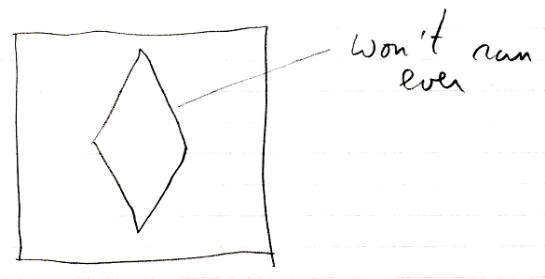 won't run
ever